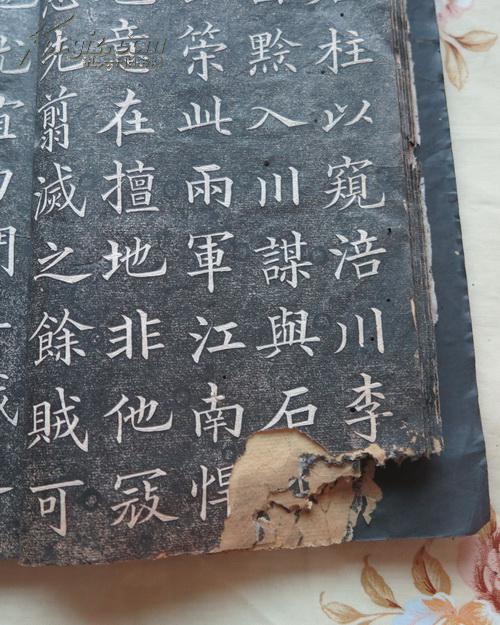 柱以窺涪川李
黔入川謀與石
䇿此兩軍江南悍
意在擅地非他寇
先翦滅之餘賊可